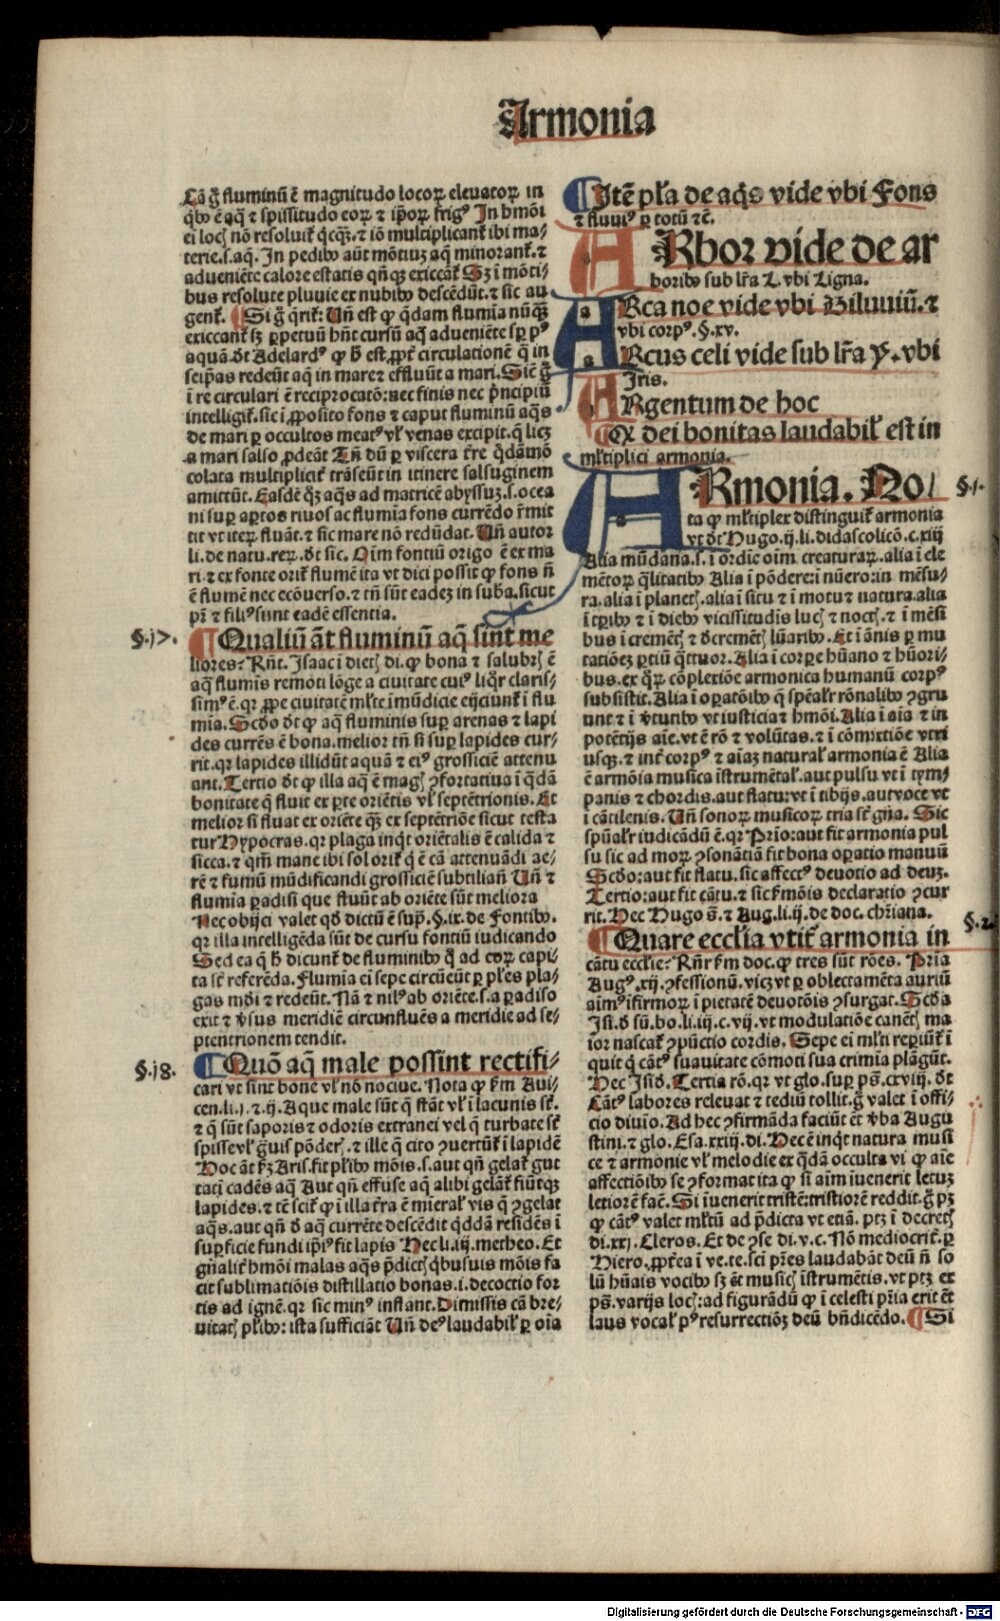 Armonia
Cã g̃ fluminũ ẽ magnitudo locoꝝ eleuatoꝝ in
q̇bꝰ ẽ aq̃ ⁊ spissitudo eoꝝ ⁊ ip̃oꝝ frigꝰ In hmõi
ei locꝭ nõ resoluit̃ q̇cq̃ꝫ. ⁊ iõ multiplicant̃ ibi ma-
terie.s.aq̃. In pedibꝰ aũt mõtiuꝫ aq̃ minorant̃. ⁊
adueniẽte calore estatis qñqꝫ exiccãt̃ Sꝫ i mõti-
bus resolute pluuie ex nubibꝰ descẽdũt. ⁊ sic au
gent̃. ¶ Si g̃ q̃rit̃: Uñ est ꝙ q̇dam flumia nũq̃ꝫ
exiccant̃ sꝫ ꝑpetuũ hñt cursũ aq̃ adueniẽte sꝑ pꝰ
aquã. d̃t Adelardꝰ ꝙ h̃ est, ꝓpt̃ circulationẽ q̃ in
seip̃as redeũt aq̃ in mare ⁊ effluũt a mari. Sic̃ g̃
ĩ re circulari ẽ reciprocatõ: nec finis nec p̃ncipiũ
intelligit̃. sic ĩ ꝓposito fons ⁊ caput fluminũ aq̃s
de mari ꝑ occultos meatꝰ vl̃ venas excipit. q̃ licꝫ
a mari salso ꝓdeãt Tñ dũ ꝑ viscera t̃re q̇dãmõ
colata multiplicit̃ trãseũt in itinere salsuginem
amittũt. Easdẽ q̃ꝫ aq̃s ad matricẽ abyssuꝫ.s.ocea
ni suꝑ aꝑtos riuos ac flumĩa fons currẽdo r̃mit
tit vt iteꝝ fluãt. ⁊ sic mare nõ redũdat. Uñ autor
li. de natu. reꝝ. d̃t sic. Oĩm fontiũ origo ẽ ex ma
ri. ⁊ ex fonte orit̃ flumẽ ita vt dici possit ꝙ fons ñ
ẽ flumẽ nec ecõuerso. ⁊ tñ sũt eadeꝫ in suba. sicut
pr̃ ⁊ filiꝰ sunt eadẽ essentia.
§.j7.
¶ Qualiũ ãt fluminũ aq̃ sint me
liores? Rñt. Isaac ĩ dietꝭ di. ꝙ bona ⁊ salubrꝭ ẽ
aq̃ flumĩs remoti lõge a ciuitate cuiꝰ liq̃r claris-
simꝰ ẽ. qꝛ ꝓpe ciuitatẽ ml̃te ĩmũdicie eijciunt̃ ĩ flu
mia. Scd̃o d̃t ꝙ aq̃ fluminis suꝑ arenas ⁊ lapi
des currẽs ẽ bona. melior tñ si suꝑ lapides cur-
rit. qꝛ lapides illidũt aquã ⁊ eiꝰ grossiciẽ attenu
ant. Tertio d̃t ꝙ illa aq̃ ẽ magꝭ ꝯfortatiua ĩ q̇dã
bonitate q̃ fluit ex ꝑte oriẽtis vl̃ septẽtrionis. Et
melior si fluat ex oriẽte q̃ꝫ ex septẽtriõe sicut testa
tur Hypocras. qꝛ plaga inq̇t oriẽtalis ẽ calida ⁊
sicca. ⁊ qm̃ mane ibi sol orit̃ q̇ ẽ cã attenuãdi ae-
rẽ ⁊ fumũ mũdificandi grossiciẽ subtiliañ Uñ ⁊
flumia ꝑadisi que fluũt ab oriẽte sũt meliora
Nec obijci valet qd̃ dictũ ẽ sup̃. §.ix. de Fontibꝰ.
qꝛ illa intelligẽda sũt de cursu fontiũ iudicando
Sed ea q̃ h̃ dicunt̃ de fluminibꝰ q̇ ad eoꝝ capi
ta st̃ referẽda. Flumia ei sepe circũeũt ꝑ ples pla-
gas mũdi ⁊ redeũt. Nã ⁊ nilꝰ ab oriẽte.s.a ꝑadiso
exit ⁊ v̾sus meridiẽ circunfluẽs a meridie ad se-
ptentrionem tendit.
§.j8.
¶ Quõ aq̃ male possint rectifi-
cari vt sint bone vl̃ nõ nociue. Nota ꝙ fm̃ Aui-
cen. li. j. ⁊. ij. Aque male sũt q̃ stãt vl̃ ĩ lacunis st̃.
⁊ q̃ sũt saporis ⁊ odoris extranei vel q̃ turbate st̃
spisse vl̃ g̃uis põderꝭ. ⁊ ille q̃ cito ꝯuertũt̃ ĩ lapidẽ
Hoc ãt fꝫ Aris. fit plibꝰ mõis.s. aut qñ gelat̃ gut
tatĩ cadẽs aq̃ Aut qñ effuse aq̃ alibi gelãt̃ fiũtqꝫ
lapides. ⁊ tẽ scit̃ ꝙ ĩ illa t̃ra ẽ mieral̃ vis q̃ ꝯgelat
aq̃s. aut qñ d̃ aq̃ currẽte descẽdit q̇ddã residẽs ĩ
suꝑficie fundi ip̃iꝰ fit lapis Hec li. iij. metheo. Et
gñalit̃ hmõi malas aq̃s p̃dictꝭ q̇busuis mõis fa
cit sublimatiõis distillatio bonas. i. decoctio for
tis ad ignẽ. qꝛ sic minꝰ inflant. Dimissis cã bre-
uitatꝭ plibꝰ: ista sufficiãt Uñ deꝰ laudabil̃ ꝑ oĩa
¶ Itẽ pl̃a de aq̃s vide vbi Fons
⁊ fluuiꝰ ꝑ totũ ⁊c̃.
ARbor vide de ar
boribꝰ sub lr̃a L. vbi Ligna.
ARca noe vide vbi Diluuiũ. ⁊
vbi corpꝰ. §. xv.
ARcus celi vide sub lr̃a Y. vbi
Iris.
ARgentum de hoc
¶ Q dei bonitas laudabil̃ est in
ml̃tiplici armonia.
§.j.
ARmonia. No-
ta ꝙ ml̃tiplex distinguit̃ armonia
vt d̃t Hugo. ij. li. didascolicõ. c. xiij
Alia mũdana.s. ĩ ordĩe oĩm creaturaꝝ. alia ĩ ele
mẽtoꝝ q̃litatibꝰ Alia ĩ põdere: ĩ nũero: in mẽsu-
ra. alia ĩ planetꝭ. alia ĩ situ ⁊ ĩ motu ⁊ natura. alia
ĩ t̃pibꝰ ⁊ ĩ diebꝰ vicissitudĩs lucꝭ ⁊ noctꝭ. ⁊ ĩ mẽsi
bus ĩ cremẽtꝭ ⁊ d̃cremẽtꝭ lũaribꝰ. Et ĩ ãnis ꝑ mu
tatiõeꝫ ꝑtiũ q̃ttuor. Alia ĩ corꝑe hũano ⁊ hũori-
bus. ex q̃ꝝ cõplexiõe armonica humanũ corpꝰ
subsistit. Alia ĩ oꝑatõibꝰ q̃ spẽalr̃ rõnalibꝰ ꝯgru
unt ⁊ ĩ v̾tutibꝰ vt iusticia ⁊ hmõi. Alia ĩ aĩa ⁊ in
potẽtijs aĩe. vt ẽ rõ ⁊ volũtas. ⁊ ĩ cõmixtiõe vtri
usqꝫ. ⁊ int̃ corpꝰ ⁊ aĩaꝫ natural̃ armonia ẽ Alia
ẽ armõia musica ĩstrumẽtal̃. aut pulsu vt ĩ tym-
panis ⁊ chordis. aut flatu: vt ĩ tibijs. aut voce vt
ĩ cãtilenis. Uñ sonoꝝ musicoꝝ tria st̃ gña. Sic
spũalr̃ iudicãdũ ẽ. qꝛ Prio: aut fit armonia pul
su sic ad moꝝ ꝯsonãtiã fit bona oꝑatio manuũ
Scd̃o: aut fit flatu. sic affectꝰ deuotio ad deuꝫ.
Tertio: aut fit cãtu. ⁊ sic fm̃õis declaratio ꝯcur
rit. Hec Hugo s̃. ⁊ Aug. li. ij. de doc. chr̃iana.
§.2.
¶ Quare eccl̃ia vtit̃ armonia in
cãtu eccl̃ie? Rñr fm̃ doc. ꝙ tres sũt rões. Pria
Augꝰ. xij. ꝯfessionũ. vicꝫ vt ꝑ oblectamẽta auriũ
aĩmꝰ ĩfirmoꝝ ĩ pietatẽ deuotõis ꝯsurgat. Scd̃a
Isi. d̃ sũ. bo. li. iij. c. vij. vt modulatiõe canẽtꝭ ma
ior nascat̃ ꝯpũctio cordis. Sepe ei ml̃ti reꝑiũt̃ ĩ
quit q̇ cãtꝰ suauitate cõmoti sua crimĩa plãgũt.
Hec Isid̃. Tertia rõ. qꝛ vt glo. suꝑ ps̃. cxviij. d̃t
Cãtꝰ labores releuat ⁊ tediũ tollit. g̃ valet ĩ offi-
cio diuĩo. Ad hec ꝯfirmãda faciũt et̃ v̾ba Augu
stini. ⁊ glo. Esa. xxiij. di. Hec ẽ inq̇t natura musi
ce ⁊ armonie vl̃ melodie ex q̇dã occulta vi ꝙ aĩe
affectiõibꝰ se ꝯformat ita ꝙ si aĩm iuenerit letuꝫ
letiorẽ faẽ. Si ĩuenerit tristẽ: tristiorẽ reddit. g̃ pꝫ
ꝙ cãtꝰ valet ml̃tũ ad p̃dicta vt etiã. ptꝫ ĩ decretꝭ
di. xxj. Cleros. Et de ꝯse di. v. c. Nõ mediocrit̃. ꝑ
Hiero. ꝓpt̃ea ĩ ve. te. sci pr̃es laudabãt deũ ñ so
lũ hũais vocibꝰ sꝫ et̃ musicꝭ ĩstrumẽtis. vt ptꝫ ex
ps̃. varijs locꝭ: ad figurãdũ ꝙ ĩ celesti pr̃ia erit et̃
laus vocal̃ pꝰ resurrectiõꝫ deũ bñdicẽdo. ¶ Si
Digitalisierung gefördert durch die Deutsche Forschungsgemeinschaft - DFG